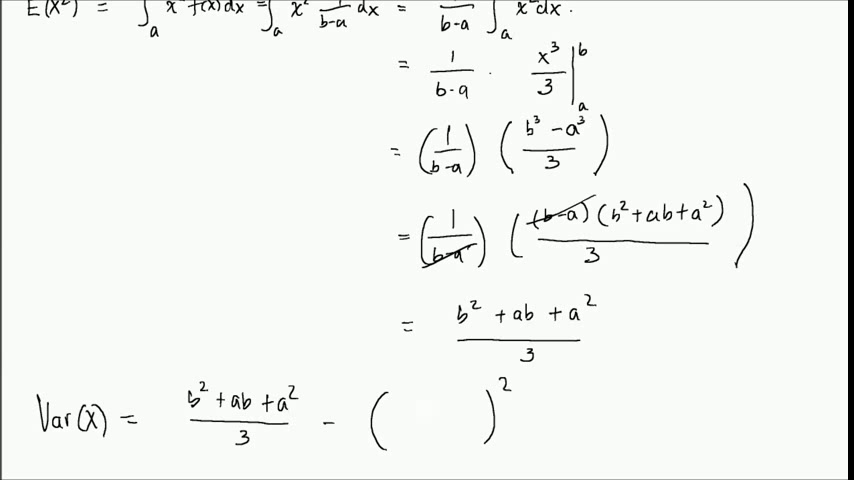 E(X²) = ∫ₐ x² f(x) dx = ∫ₐ x² 1/(b-a) dx = 1/(b-a) ∫ₐ x² dx.
= 1/(b-a) · x³/3 |ₐᵇ
= (1/(b-a)) ((b³-a³)/3)
= (1/(b-a)) ((b-a)(b²+ab+a²)/3)
= (b²+ab+a²)/3
Var(X) = (b²+ab+a²)/3 - ( )²